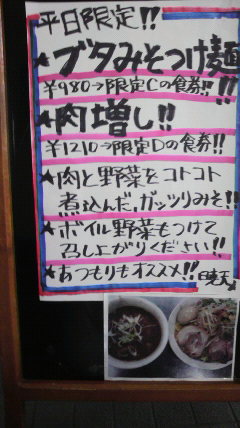 平日限定!!
★ブタみそつけ麺
¥980→限定Cの食券!!
★肉増し!!
¥1210→限定Dの食券!!
★肉と野菜をコトコト
煮込んだ、ガッツリみそ!!
★ボイル野菜もつけて
召し上がりください!!
★あつもりもオススメ!!